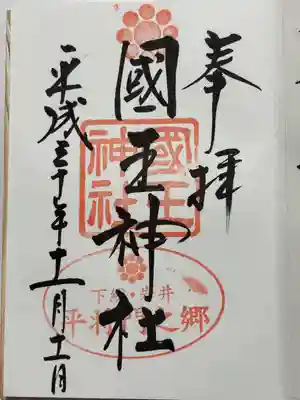 奉拝
國王神社
國王神社
下総・岩井
平将門之郷
平成三十年十一月十一日